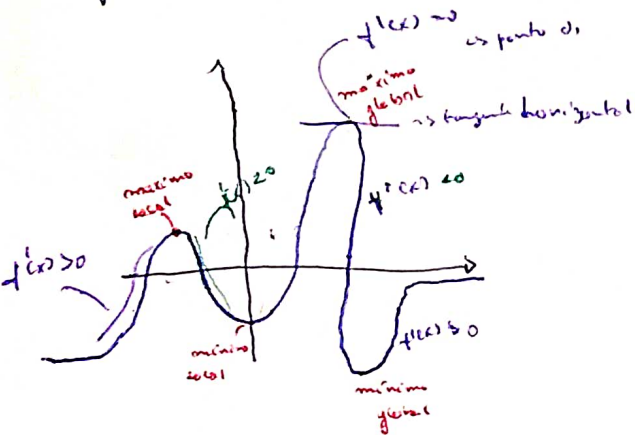 f'(x) = 0
⇒ ponto
máximo
global
⇒ tangente horizontal
máximo
local
f'(x) < 0
f'(x) < 0
f'(x) > 0
f'(x) > 0
mínimo
local
mínimo
global